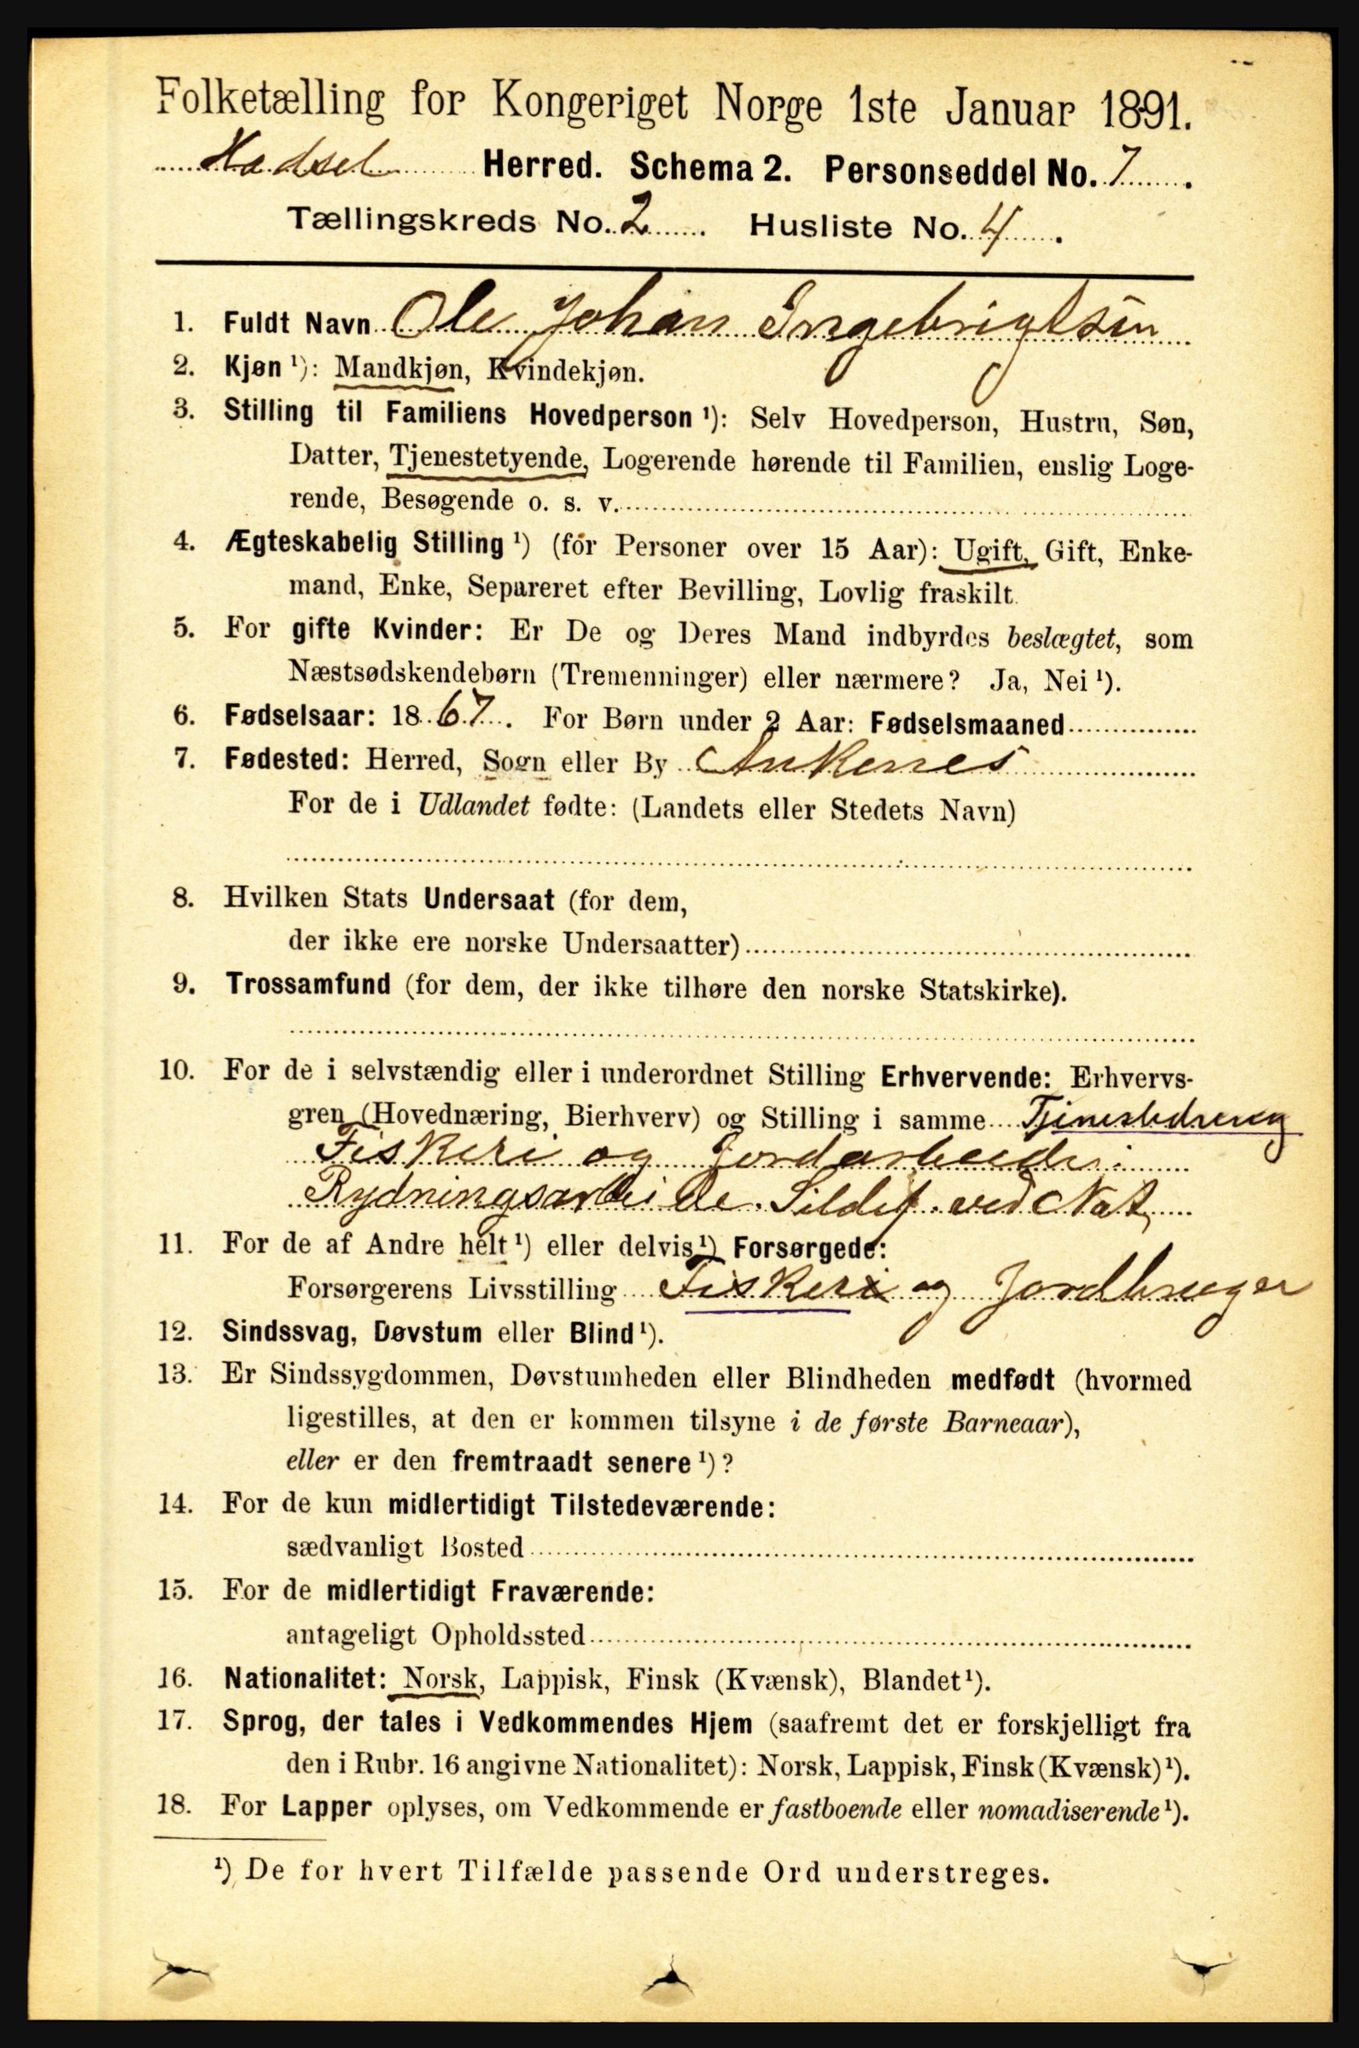 Folketælling for Kongeriget Norge 1ste Januar 1891.
Hadsel Herred. Schema 2. Personseddel No. 7.
Tællingskreds No. 2. Husliste No. 4.
1. Fuldt Navn Ole Johan Ingebrigtsen
2. Kjøn ¹): Mandkjøn, Kvindekjøn.
3. Stilling til Familiens Hovedperson ¹): Selv Hovedperson, Hustru, Søn,
Datter, Tjenestetyende, Logerende hørende til Familien, enslig Loge-
rende, Besøgende o. s. v.
4. Ægteskabelig Stilling ¹) (for Personer over 15 Aar): Ugift, Gift, Enke-
mand, Enke, Separeret efter Bevilling, Lovlig fraskilt.
5. For gifte Kvinder: Er De og Deres Mand indbyrdes beslægtet, som
Næstsødskendebørn (Tremenninger) eller nærmere? Ja, Nei ¹).
6. Fødselsaar: 1867. For Børn under 2 Aar: Fødselsmaaned
7. Fødested: Herred, Sogn eller By Ankenes
For de i Udlandet fødte: (Landets eller Stedets Navn)
8. Hvilken Stats Undersaat (for dem,
der ikke ere norske Undersaatter)
9. Trossamfund (for dem, der ikke tilhøre den norske Statskirke).
10. For de i selvstændig eller i underordnet Stilling Erhvervende: Erhvervs-
gren (Hovednæring, Bierhverv) og Stilling i samme Tjenestedreng
Fiskeri og Jordarbeide:
Rydningsarbeide. Sildef. ved Not,
11. For de af Andre helt ¹) eller delvis ¹) Forsørgede:
Forsørgerens Livsstilling Fiskeri og Jordbruger
12. Sindssvag, Døvstum eller Blind ¹).
13. Er Sindssygdommen, Døvstumheden eller Blindheden medfødt (hvormed
ligestilles, at den er kommen tilsyne i de første Barneaar),
eller er den fremtraadt senere ¹)?
14. For de kun midlertidigt Tilstedeværende:
sædvanligt Bosted
15. For de midlertidigt Fraværende:
antageligt Opholdssted
16. Nationalitet: Norsk, Lappisk, Finsk (Kvænsk), Blandet ¹).
17. Sprog, der tales i Vedkommendes Hjem (saafremt det er forskjelligt fra
den i Rubr. 16 angivne Nationalitet): Norsk, Lappisk, Finsk (Kvænsk) ¹).
18. For Lapper oplyses, om Vedkommende er fastboende eller nomadiserende ¹).
¹) De for hvert Tilfælde passende Ord understreges.